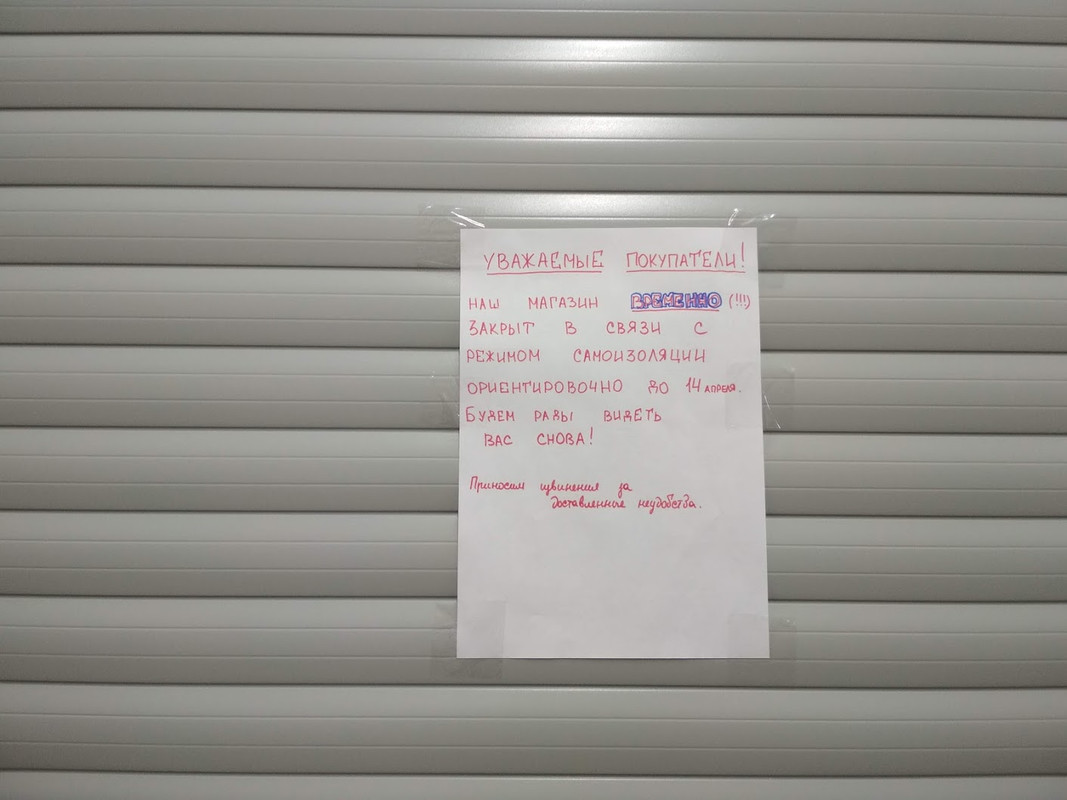 УВАЖАЕМЫЕ ПОКУПАТЕЛИ!
НАШ МАГАЗИН ВРЕМЕННО (!!!)
ЗАКРЫТ В СВЯЗИ С
РЕЖИМОМ САМОИЗОЛЯЦИИ
ОРИЕНТИРОВОЧНО ДО 14 АПРЕЛЯ.
БУДЕМ РАДЫ ВИДЕТЬ
ВАС СНОВА!
Приносим извинения за
доставленные неудобства.